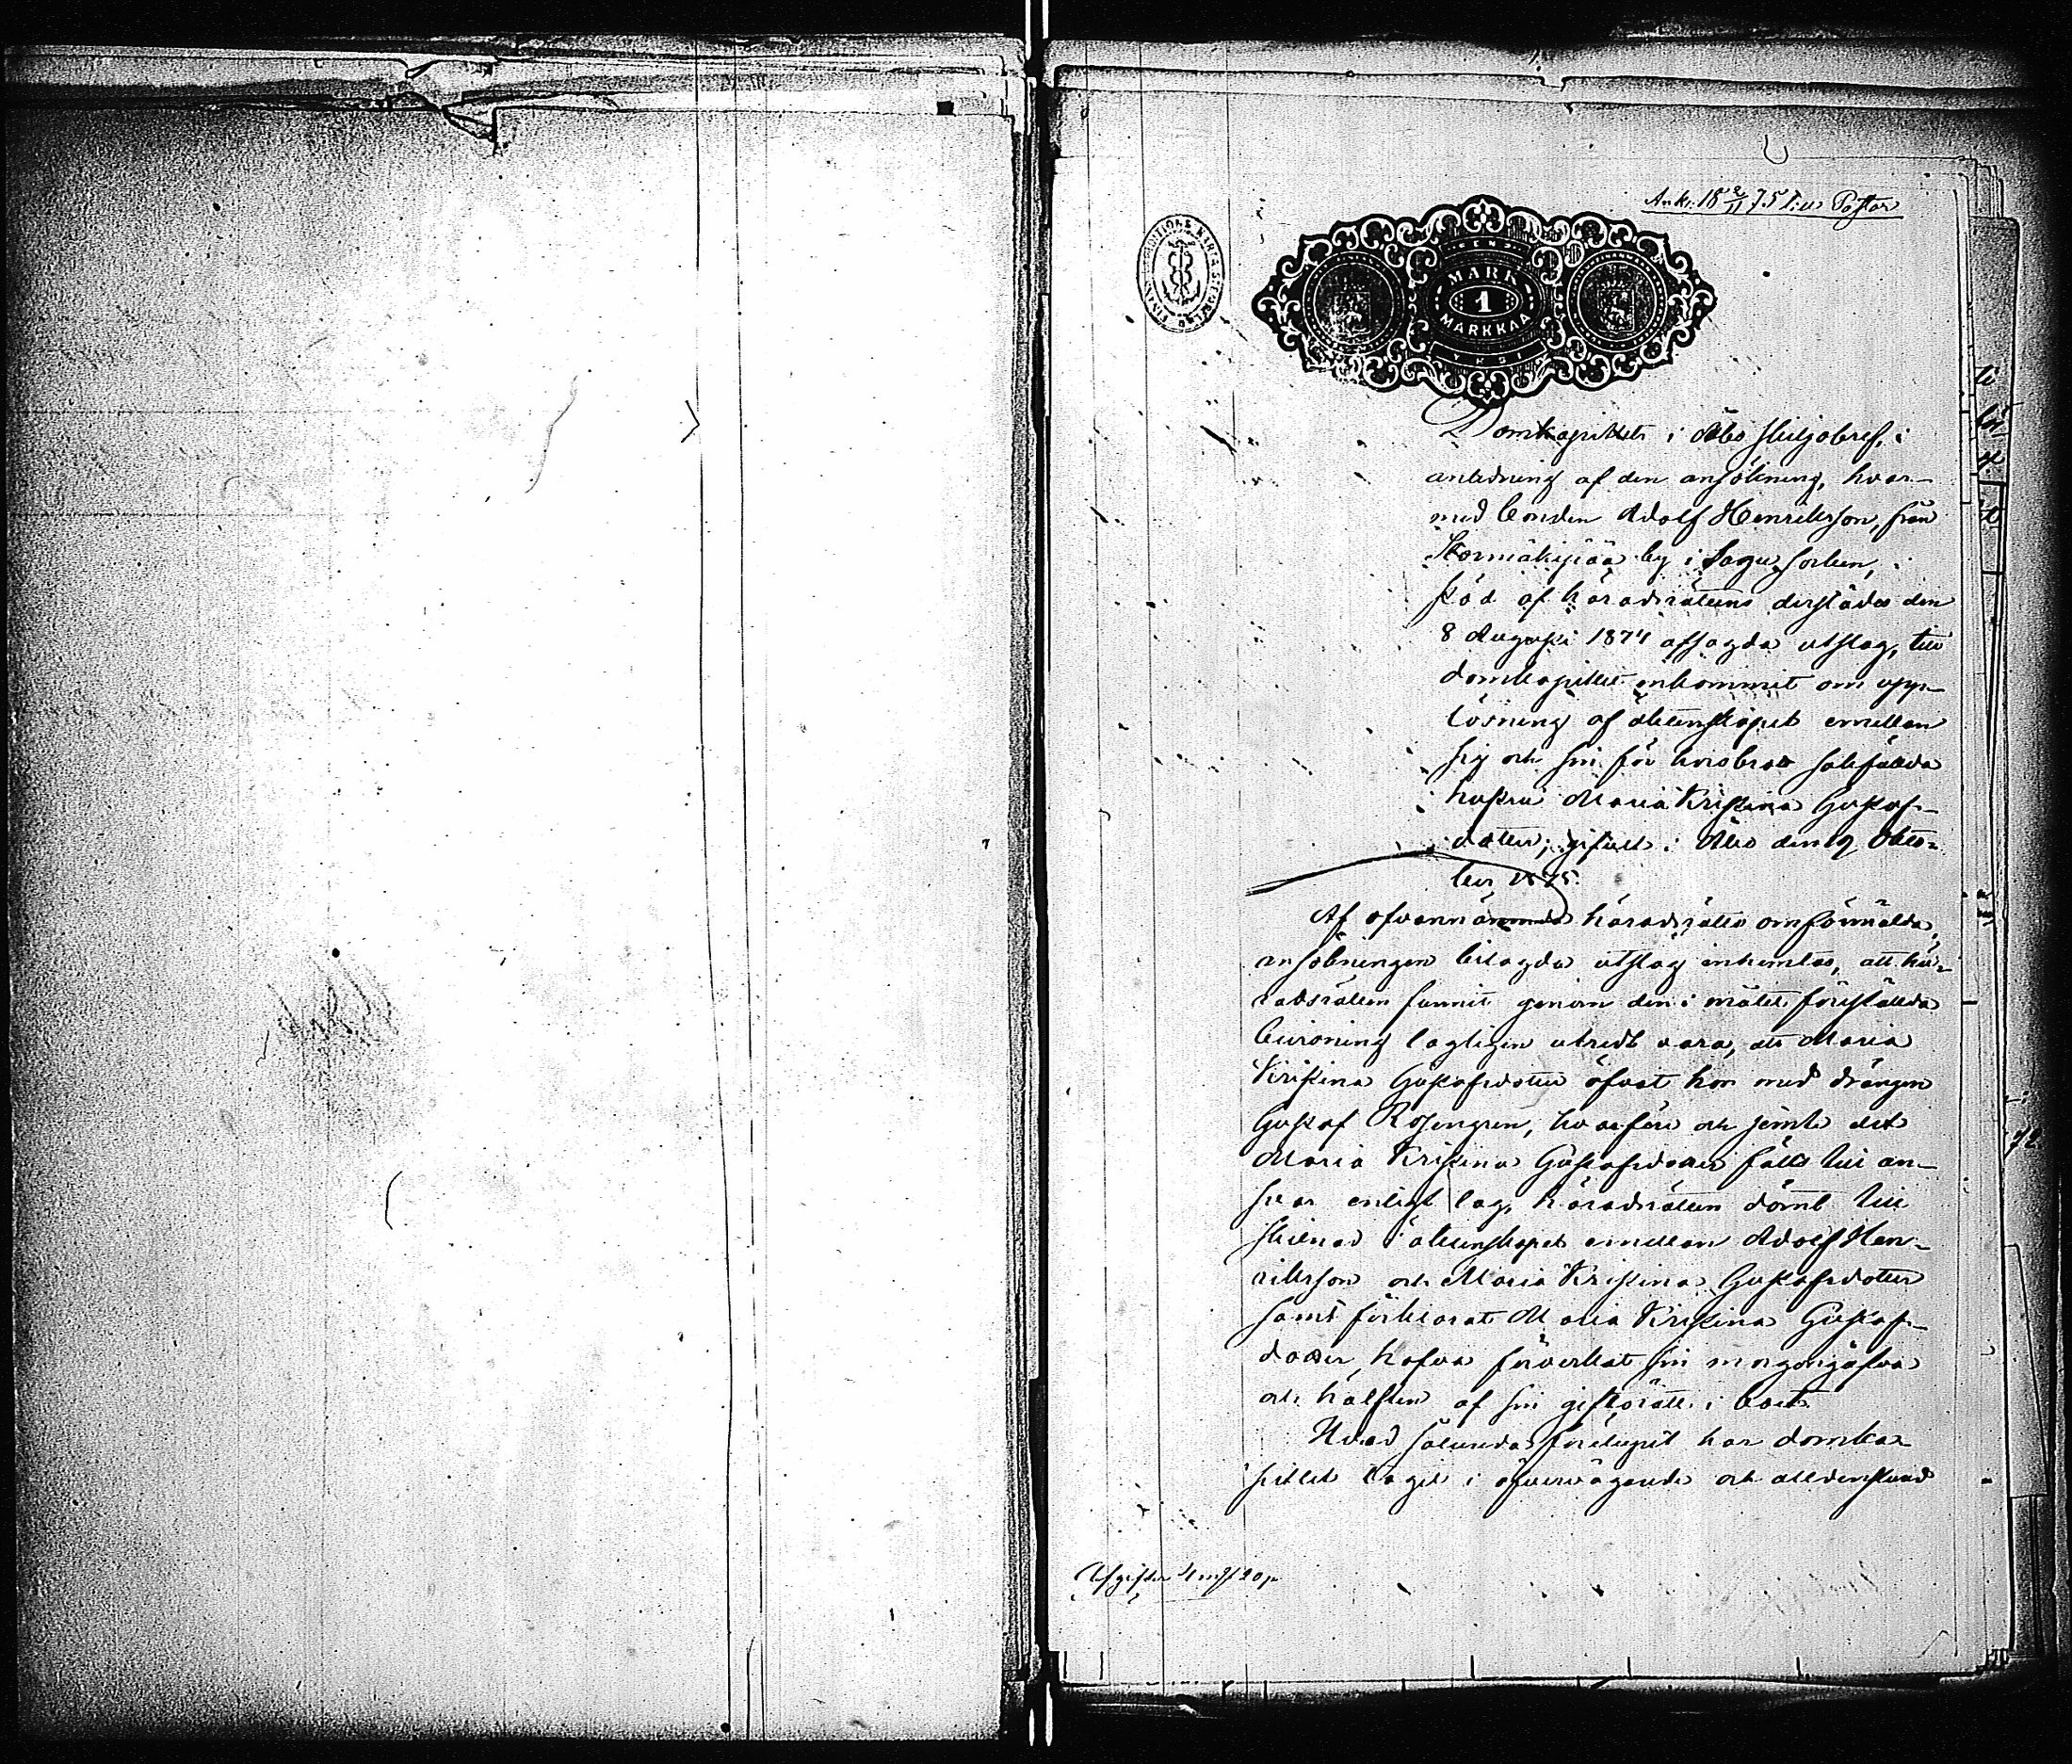 Ank: 18 2/11 75 till Pastor
MARK
1
MARKKAA
YKSI
Domkapitlets i Åbo skiljobref, i
anledning af den ansökning, hvar-
med bonden Adolf Henriksson, från
by i Sagu socken, i
stöd af häradsrättens derstädes den
8 Augusti 1874 afsagda utslag, till
domkapitlet inkommit om upp-
lösning af äktenskapet emellan
sig och sin för horsbrott sakfällda
hustru Maria Kristina Gustafs-
dotter; gifvet i Åbo den 19 Okto-
ber 1875.
Af ofvannämnda häradsrätts omförmälda,
ansökningen bilagda utslag inhemtas, att hä-
radsrätten funnit genom den i målet förestälda
bevisning lagligen utredt vara, att Maria
Kristina Gustafsdotter öfvat hor med drängen
Gustaf Rosengren, hvarföre och jemte det
Maria Kristina Gustafsdotter fälts till an-
svar enligt lag, häradsrätten dömt till
skilnad i äktenskapet emellan Adolf Hen-
riksson och Maria Kristina Gustafsdotter
samt förklarat Maria Kristina Gustafs-
dotter hafva förverkat sin morgongåfva
och hälften af sin giftorätt i boet.
Hvad sålunda förelupit har domka-
pitlet tagit i öfvervägande och alldenstund
Afgifter 4 mk 20 p